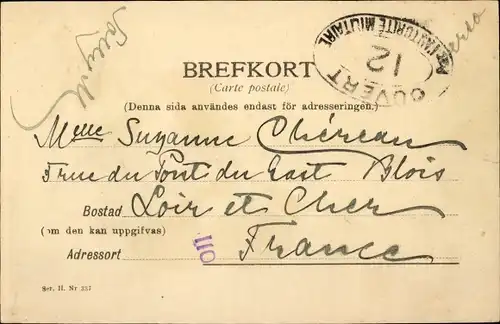 OUVERT
PAR L'AUTORITÉ MILITAIRE
12
BREFKORT
(Carte postale)
(Denna sida användes endast för adresseringen.)
Melle Suzanne Chéreau
5 rue du Pont du Gast Blois
Bostad Loir et Cher
(om den kan uppgifvas)
Adressort France
110
Ser. II. Nr 337